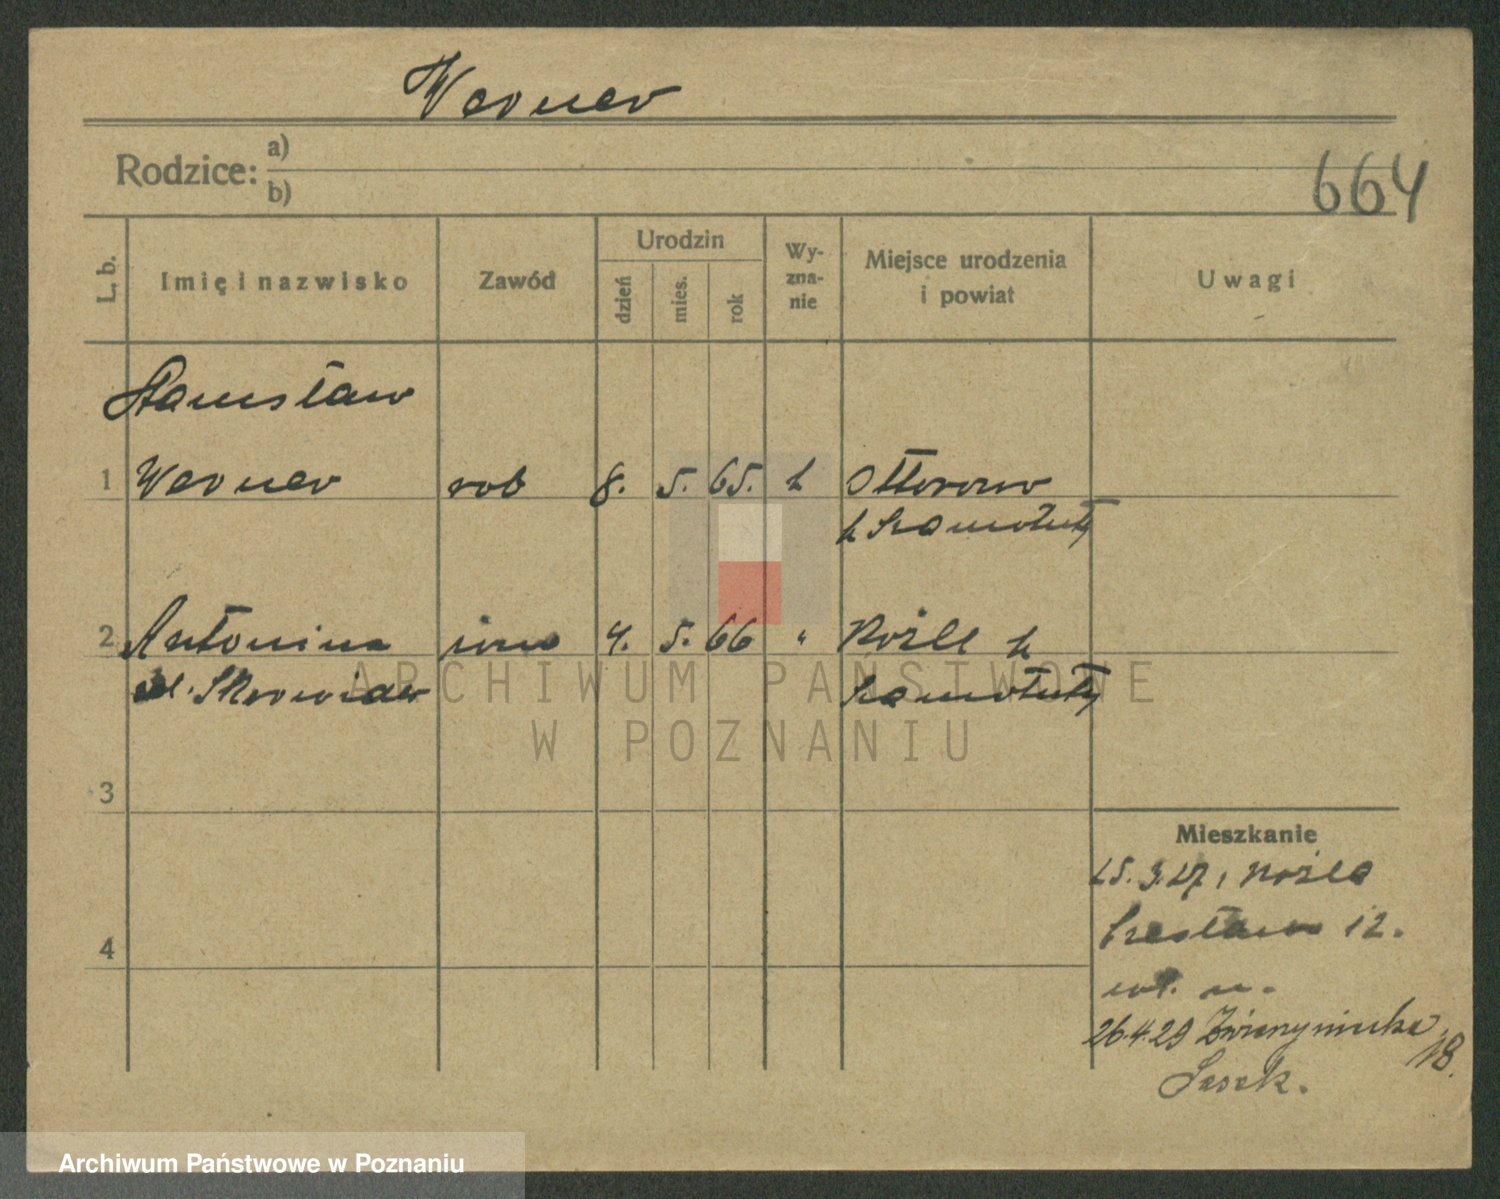 Werner
Rodzice: a)
b)
664
L. b.
Imię i nazwisko
Zawód
Urodzin
dzień
mies.
rok
Wy-
zna-
nie
Miejsce urodzenia
i powiat
Uwagi
Stanisław
1 Werner rob 8. 5. 65. k Ottorowo
p Szamotuły
2 Antonina żona 4. 5. 66 "
Szamotuły
3
4
Mieszkanie
25.3.27,
Czesława 12.
26.4.29 Zwierzyniecka 18.
ARCHIWUM PAŃSTWOWE
W POZNANIU
Archiwum Państwowe w Poznaniu